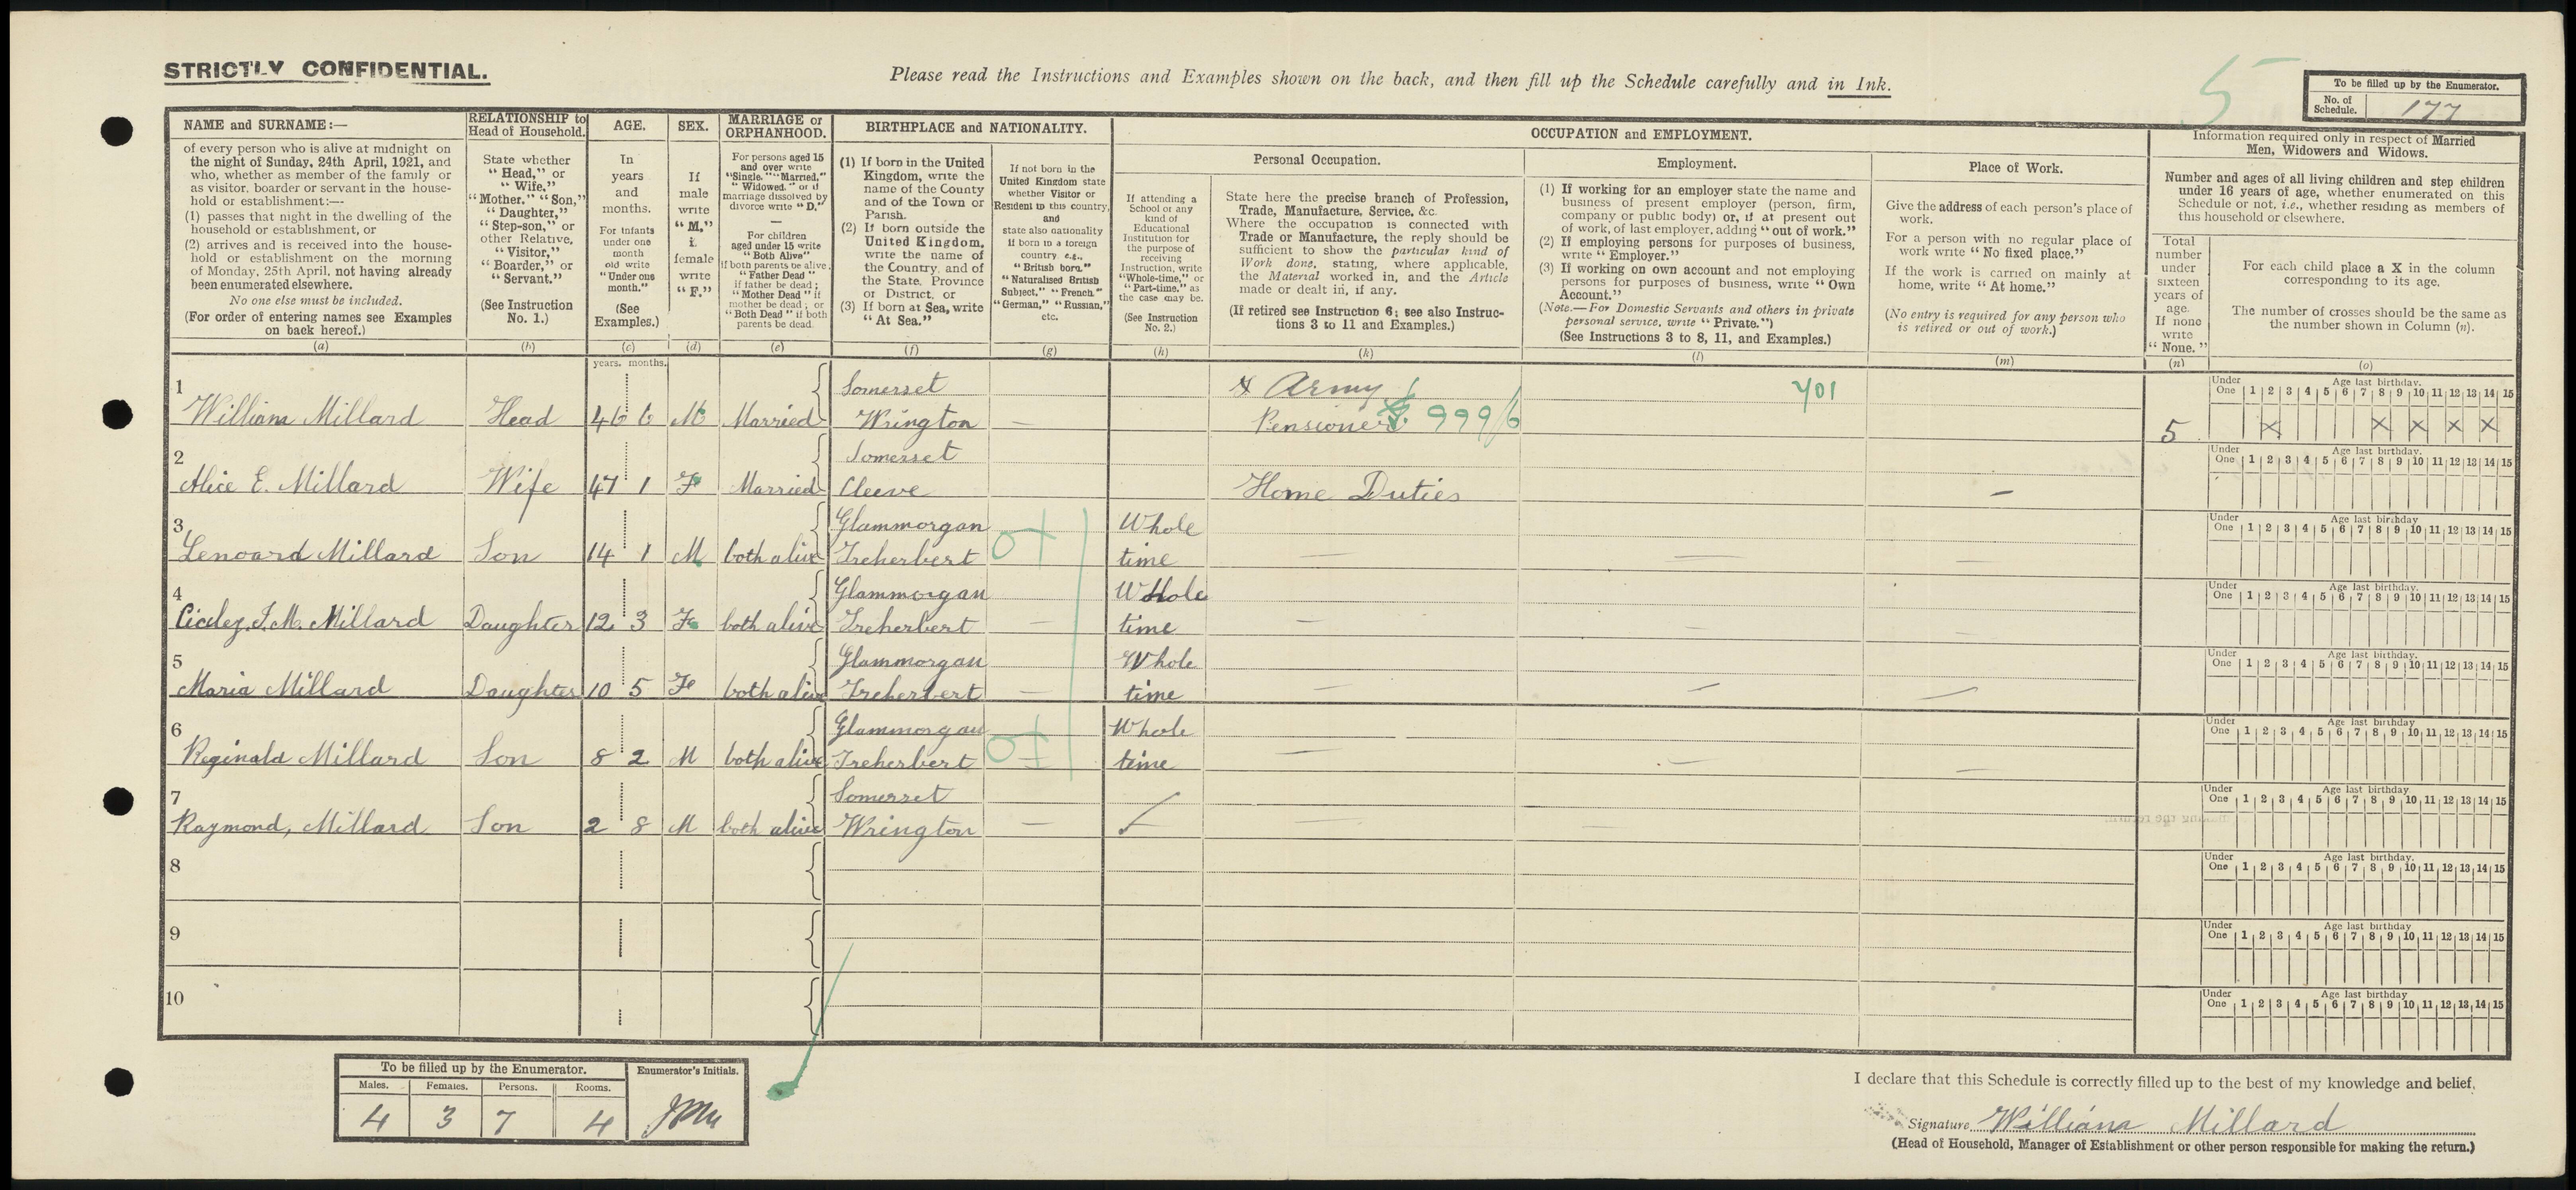 STRICTLY CONFIDENTIAL.
Please read the Instructions and Examples shown on the back, and then fill up the Schedule carefully and in Ink.
5
To be filled up by the Enumerator.
No. of Schedule. 177
NAME and SURNAME:—
of every person who is alive at midnight on
the night of Sunday, 24th April, 1921, and
who, whether as member of the family or
as visitor, boarder or servant in the house-
hold or establishment:—
(1) passes that night in the dwelling of the
household or establishment, or
(2) arrives and is received into the house-
hold or establishment on the morning
of Monday, 25th April, not having already
been enumerated elsewhere.
No one else must be included.
(For order of entering names see Examples
on back hereof.)
(a)
RELATIONSHIP to
Head of Household.
State whether
"Head," or
"Wife,"
"Mother," "Son,"
"Daughter,"
"Step-son," or
other Relative,
"Visitor,"
"Boarder," or
"Servant."
(See Instruction
No. 1.)
(b)
AGE.
In
years
and
months.
For infants
under one
month
old write
"Under one
month."
(See
Examples.)
(c)
SEX.
If
male
write
"M."
if
female
write
"F."
(d)
MARRIAGE or
ORPHANHOOD.
For persons aged 15
and over write
"Single," "Married,"
"Widowed," or if
marriage dissolved by
divorce write "D."
—
For children
aged under 15 write
"Both Alive"
if both parents be alive
"Father Dead"
if father be dead;
"Mother Dead" if
mother be dead; or
"Both Dead" if both
parents be dead.
(e)
BIRTHPLACE and NATIONALITY.
(1) If born in the United
Kingdom, write the
name of the County
and of the Town or
Parish.
(2) If born outside the
United Kingdom,
write the name of
the Country, and of
the State, Province
or District, or
(3) If born at Sea, write
"At Sea."
(f)
If not born in the
United Kingdom state
whether Visitor or
Resident in this country,
and
state also nationality
if born in a foreign
country. e.g.,
"British born,"
"Naturalised British
Subject," "French,"
"German," "Russian,"
etc.
(g)
OCCUPATION and EMPLOYMENT.
Personal Occupation.
If attending a
School or any
kind of
Educational
Institution for
the purpose of
receiving
Instruction, write
"Whole-time," or
"Part-time," as
the case may be.
(See Instruction
No. 2.)
(h)
State here the precise branch of Profession,
Trade, Manufacture, Service, &c.
Where the occupation is connected with
Trade or Manufacture, the reply should be
sufficient to show the particular kind of
Work done, stating, where applicable,
the Material worked in, and the Article
made or dealt in, if any.
(If retired see Instruction 6; see also Instruc-
tions 3 to 11 and Examples.)
(k)
Employment.
(1) If working for an employer state the name and
business of present employer (person, firm,
company or public body) or, if at present out
of work, of last employer, adding "out of work."
(2) If employing persons for purposes of business,
write "Employer."
(3) If working on own account and not employing
persons for purposes of business, write "Own
Account."
(Note.—For Domestic Servants and others in private
personal service, write "Private.")
(See Instructions 3 to 8, 11, and Examples.)
(l)
Place of Work.
Give the address of each person's place of
work.
For a person with no regular place of
work write "No fixed place."
If the work is carried on mainly at
home, write "At home."
(No entry is required for any person who
is retired or out of work.)
(m)
Information required only in respect of Married
Men, Widowers and Widows.
Number and ages of all living children and step children
under 16 years of age, whether enumerated on this
Schedule or not, i.e., whether residing as members of
this household or elsewhere.
Total
number
under
sixteen
years of
age.
If none
write
"None."
(n)
For each child place a X in the column
corresponding to its age.
The number of crosses should be the same as
the number shown in Column (n).
(o)
years. months.
1 Somerset Army 701
William Millard Head 46 6 M Married Wrington — Pensioner 999/6 5
Under One 1 2 3 4 5 6 7 8 9 10 11 12 13 14 15 Age last birthday.
X X X X X
2 Somerset
Alice E. Millard Wife 47 1 F Married Cleeve Home Duties —
Under One 1 2 3 4 5 6 7 8 9 10 11 12 13 14 15 Age last birthday.
3 Glammorgan Whole
Lenoard Millard Son 14 1 M both alive Treherbert time — — —
Under One 1 2 3 4 5 6 7 8 9 10 11 12 13 14 15 Age last birthday
4 Glammorgan Whole
Cicley. I. M. Millard Daughter 12 3 F both alive Treherbert — time — — —
Under One 1 2 3 4 5 6 7 8 9 10 11 12 13 14 15 Age last birthday.
5 Glammorgan Whole
Maria Millard Daughter 10 5 F both alive Treherbert — time — — —
Under One 1 2 3 4 5 6 7 8 9 10 11 12 13 14 15 Age last birthday.
6 Glammorgan Whole
Reginald Millard Son 8 2 M both alive Treherbert — time — — —
Under One 1 2 3 4 5 6 7 8 9 10 11 12 13 14 15 Age last birthday
7 Somerset
Raymond, Millard Son 2 8 M both alive Wrington — — —
Under One 1 2 3 4 5 6 7 8 9 10 11 12 13 14 15 Age last birthday.
8
Under One 1 2 3 4 5 6 7 8 9 10 11 12 13 14 15 Age last birthday.
9
Under One 1 2 3 4 5 6 7 8 9 10 11 12 13 14 15 Age last birthday
10
Under One 1 2 3 4 5 6 7 8 9 10 11 12 13 14 15 Age last birthday
To be filled up by the Enumerator. Enumerator's Initials.
Males. Females. Persons. Rooms.
4 3 7 4
I declare that this Schedule is correctly filled up to the best of my knowledge and belief.
Signature William Millard
(Head of Household, Manager of Establishment or other person responsible for making the return.)